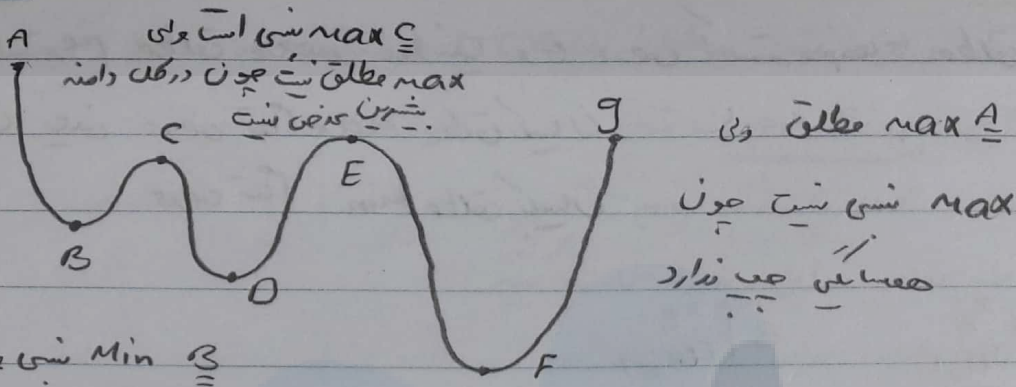 A
C max نسبی است ولی
max مطلق نیست چون در کل دامنه
بیشترین عرض نیست
C
E
g
B
D
F
A max مطلق ولی
max نسبی نیست چون
همسایگی چپ ندارد
B Min نسبی